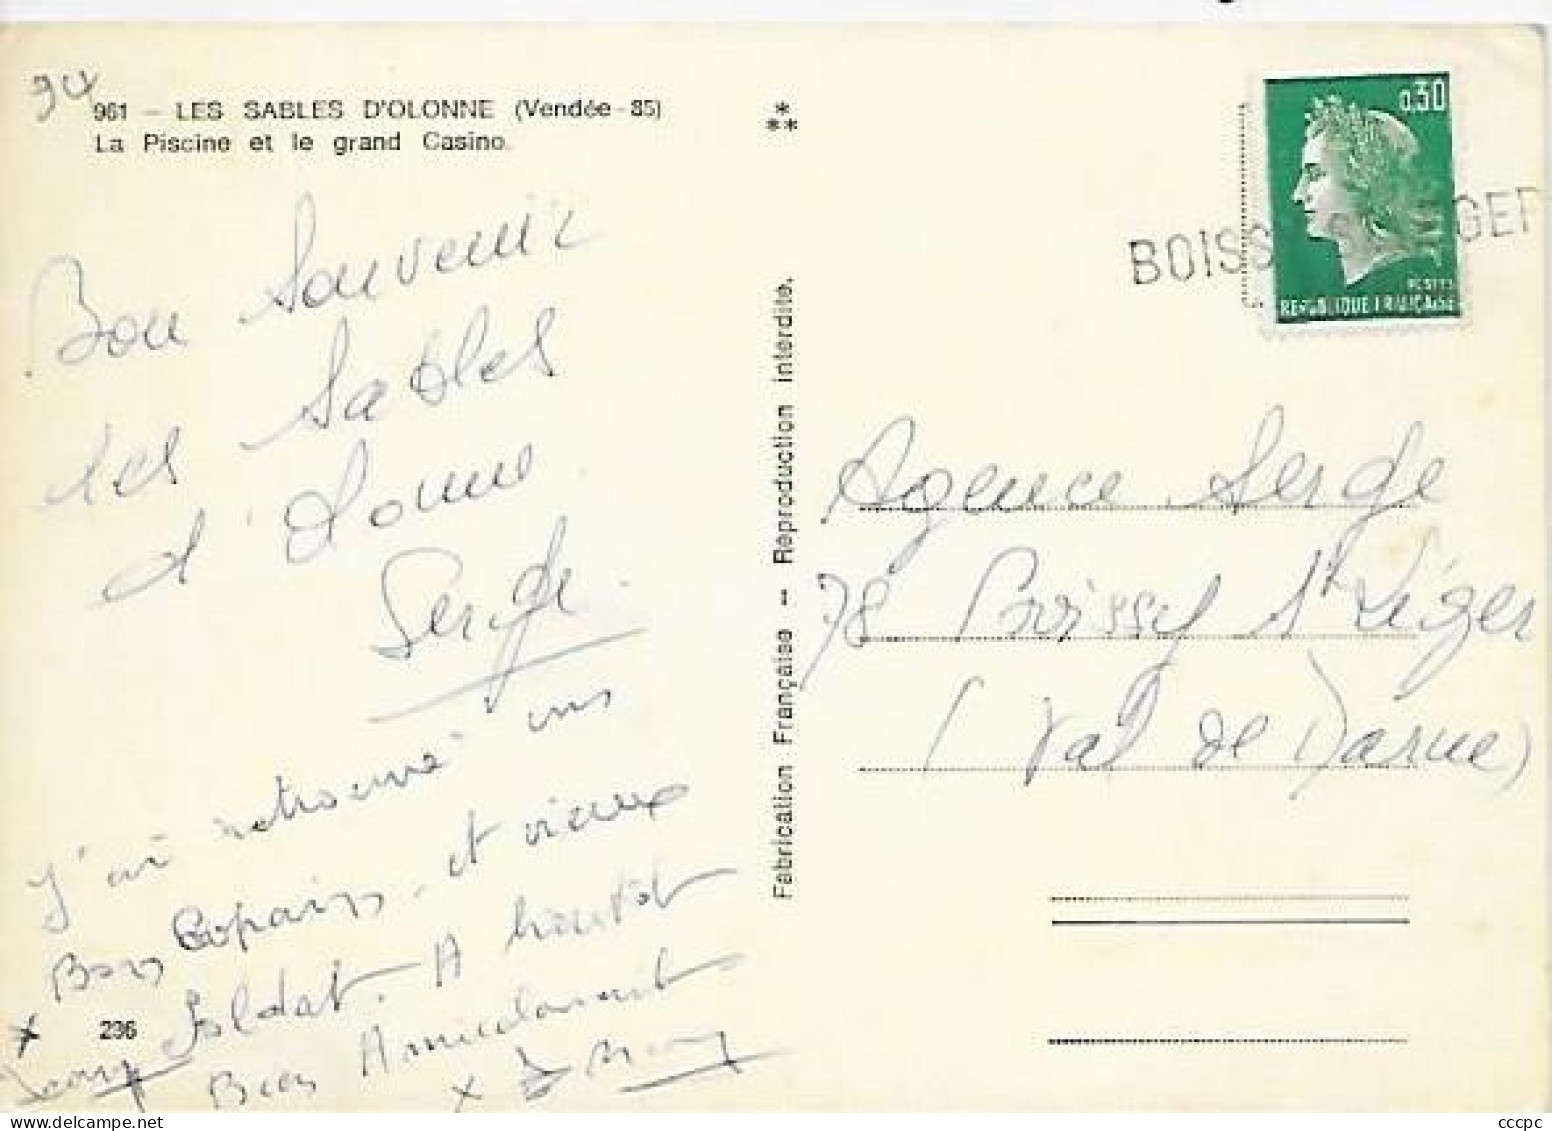 94
961 - LES SABLES D'OLONNE (Vendée - 85)
La Piscine et le grand Casino.
Bon Souvenir
des Sables
d'Olonne.
Serge.
J'ai retrouvé un
Bons Copains et vieux
Soldat. A bientôt
Bien Amicalement
236
Fabrication Française -- Reproduction interdite.
0.30
POSTES
REPUBLIQUE FRANÇAISE
BOISS GER
Agence Serge
78 Boissy St Léger
(Val de Marne)
cccpc